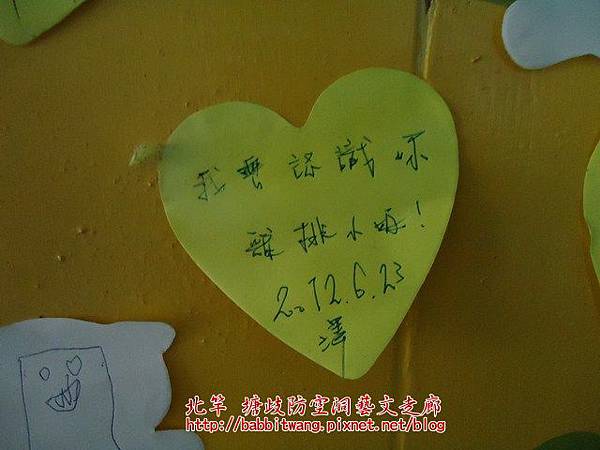 我要認識妳
雞排小妹!
2012.6.23
澤
北竿 塘岐防空洞藝文走廊
http://babbitwang.pixnet.net/blog